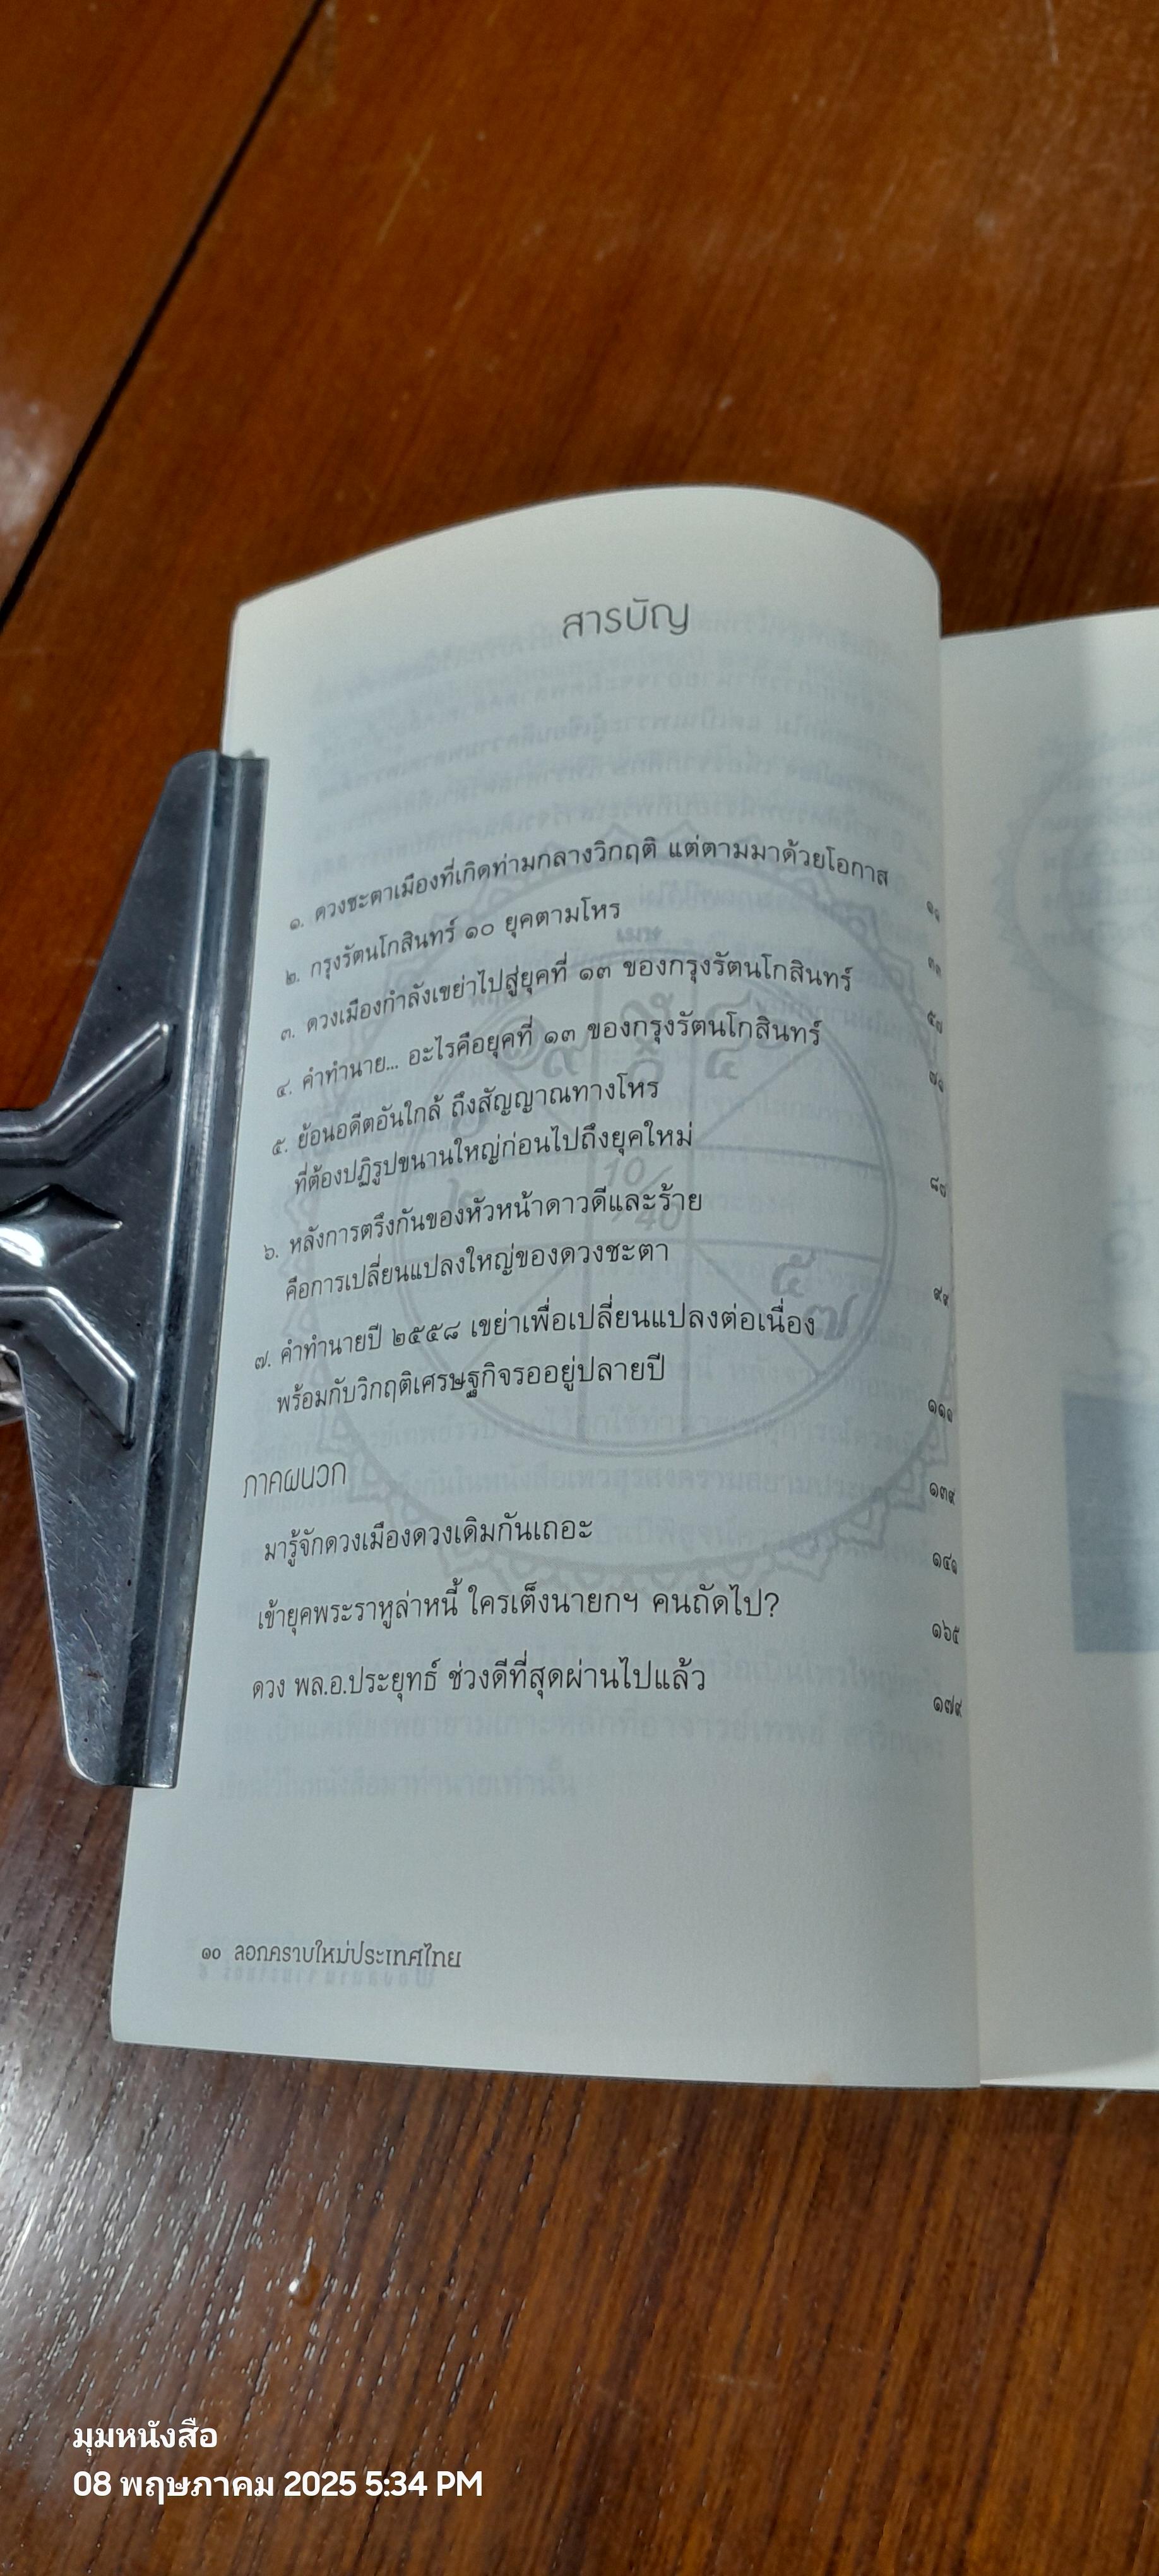 สารบัญ
๑. ดวงชะตาเมืองที่เกิดท่ามกลางวิกฤติ แต่ตามมาด้วยโอกาส ๑๑
๒. กรุงรัตนโกสินทร์ ๑๐ ยุคตามโหร ๓๓
๓. ดวงเมืองกำลังเขย่าไปสู่ยุคที่ ๑๓ ของกรุงรัตนโกสินทร์ ๕๗
๔. คำทำนาย... อะไรคือยุคที่ ๑๓ ของกรุงรัตนโกสินทร์ ๗๑
๕. ย้อนอดีตอันใกล้ ถึงสัญญาณทางโหร
ที่ต้องปฏิรูปขนานใหญ่ก่อนไปถึงยุคใหม่ ๘๗
๖. หลังการตรึงกันของหัวหน้าดาวดีและร้าย
คือการเปลี่ยนแปลงใหญ่ของดวงชะตา ๙๙
๗. คำทำนายปี ๒๕๕๘ เขย่าเพื่อเปลี่ยนแปลงต่อเนื่อง
พร้อมกับวิกฤติเศรษฐกิจรออยู่ปลายปี ๑๑๑
ภาคผนวก ๑๓๙
มารู้จักดวงเมืองดวงเดิมกันเถอะ ๑๔๑
เข้ายุคพระราหูล่าหนี้ ใครเต็งนายกฯ คนถัดไป? ๑๖๕
ดวง พล.อ.ประยุทธ์ ช่วงดีที่สุดผ่านไปแล้ว ๑๗๙
๑๐ ลอกคราบใหม่ประเทศไทย
มุมหนังสือ
08 พฤษภาคม 2025 5:34 PM